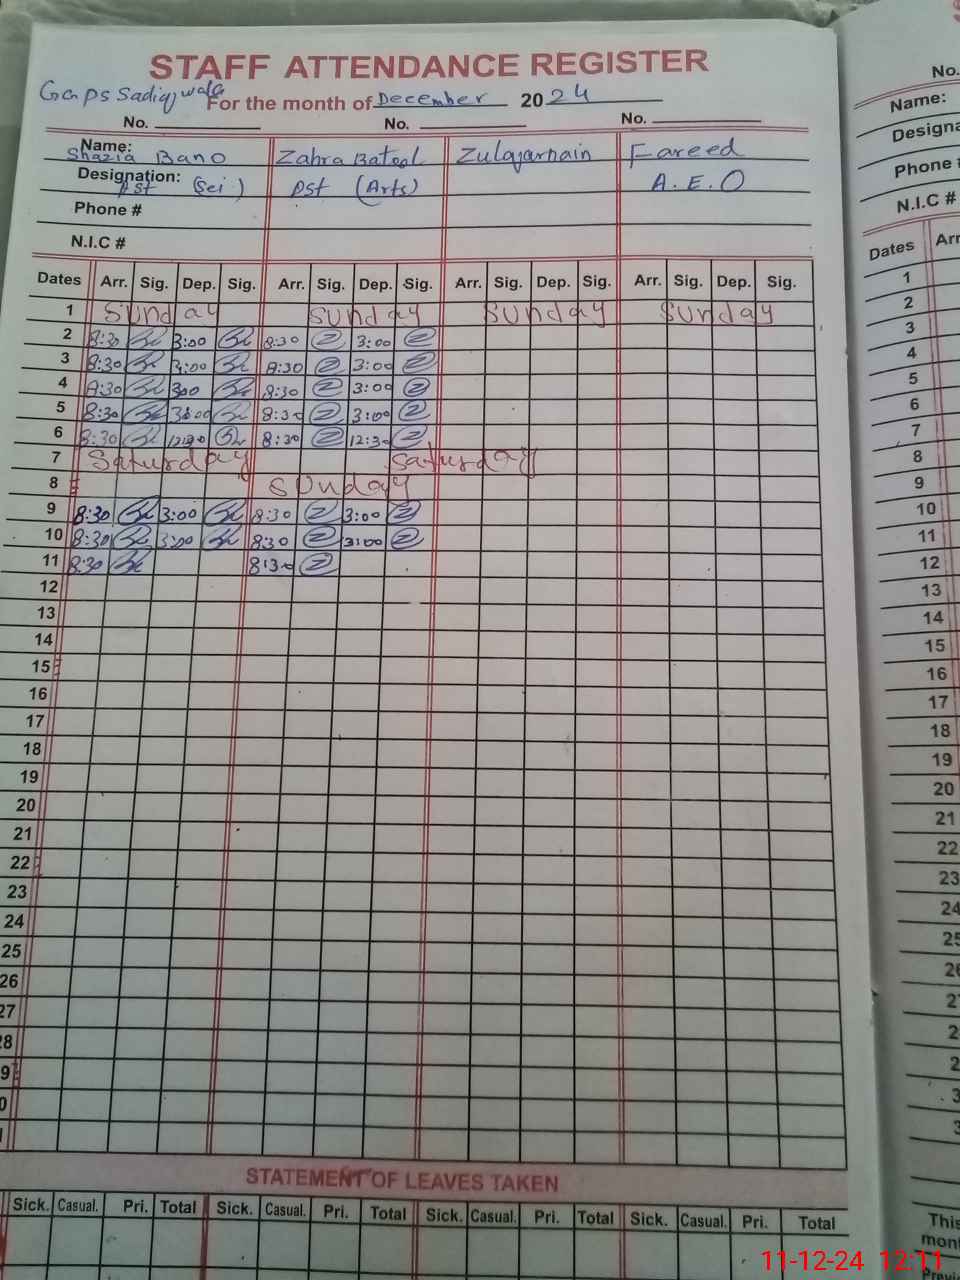 STAFF ATTENDANCE REGISTER
GGPS Sadiq wala
For the month of December 2024
No. No. No.
Name: Shazia Bano Zahra Batool Zulqarnain Fareed
Designation: PST (Sci) PST (Arts) A.E.O
Phone #
N.I.C #
Dates Arr. Sig. Dep. Sig. Arr. Sig. Dep. Sig. Arr. Sig. Dep. Sig. Arr. Sig. Dep. Sig.
1 Sunday Sunday Sunday Sunday
2 8:30 3:00 8:30 3:00
3 8:30 3:00 8:30 3:00
4 8:30 300 8:30 3:00
5 8:30 3:00 8:30 3:00
6 8:30 12:30 8:30 12:30
7 Saturday Saturday
8 Sunday
9 8:30 3:00 8:30 3:00
10 8:30 3:00 830 3:00
11 8:30 8:30
12
13
14
15
16
17
18
19
20
21
22
23
24
25
26
27
28
9
0
STATEMENT OF LEAVES TAKEN
Sick. Casual. Pri. Total Sick. Casual. Pri. Total Sick. Casual. Pri. Total Sick. Casual. Pri. Total
No.
Name:
Designa
Phone #
N.I.C #
Dates Arr
1
2
3
4
5
6
7
8
9
10
11
12
13
14
15
16
17
18
19
20
21
22
23
24
25
26
2
2
2
3
3
This
mont
Previ
11-12-24 12:11